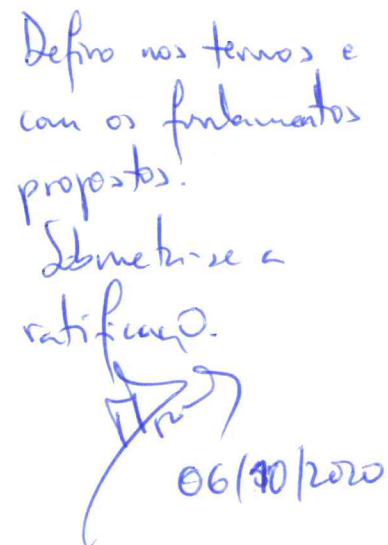 Defiro nos termos e
com os fundamentos
propostos.
Submeta-se a
ratificação.
06/10/2020